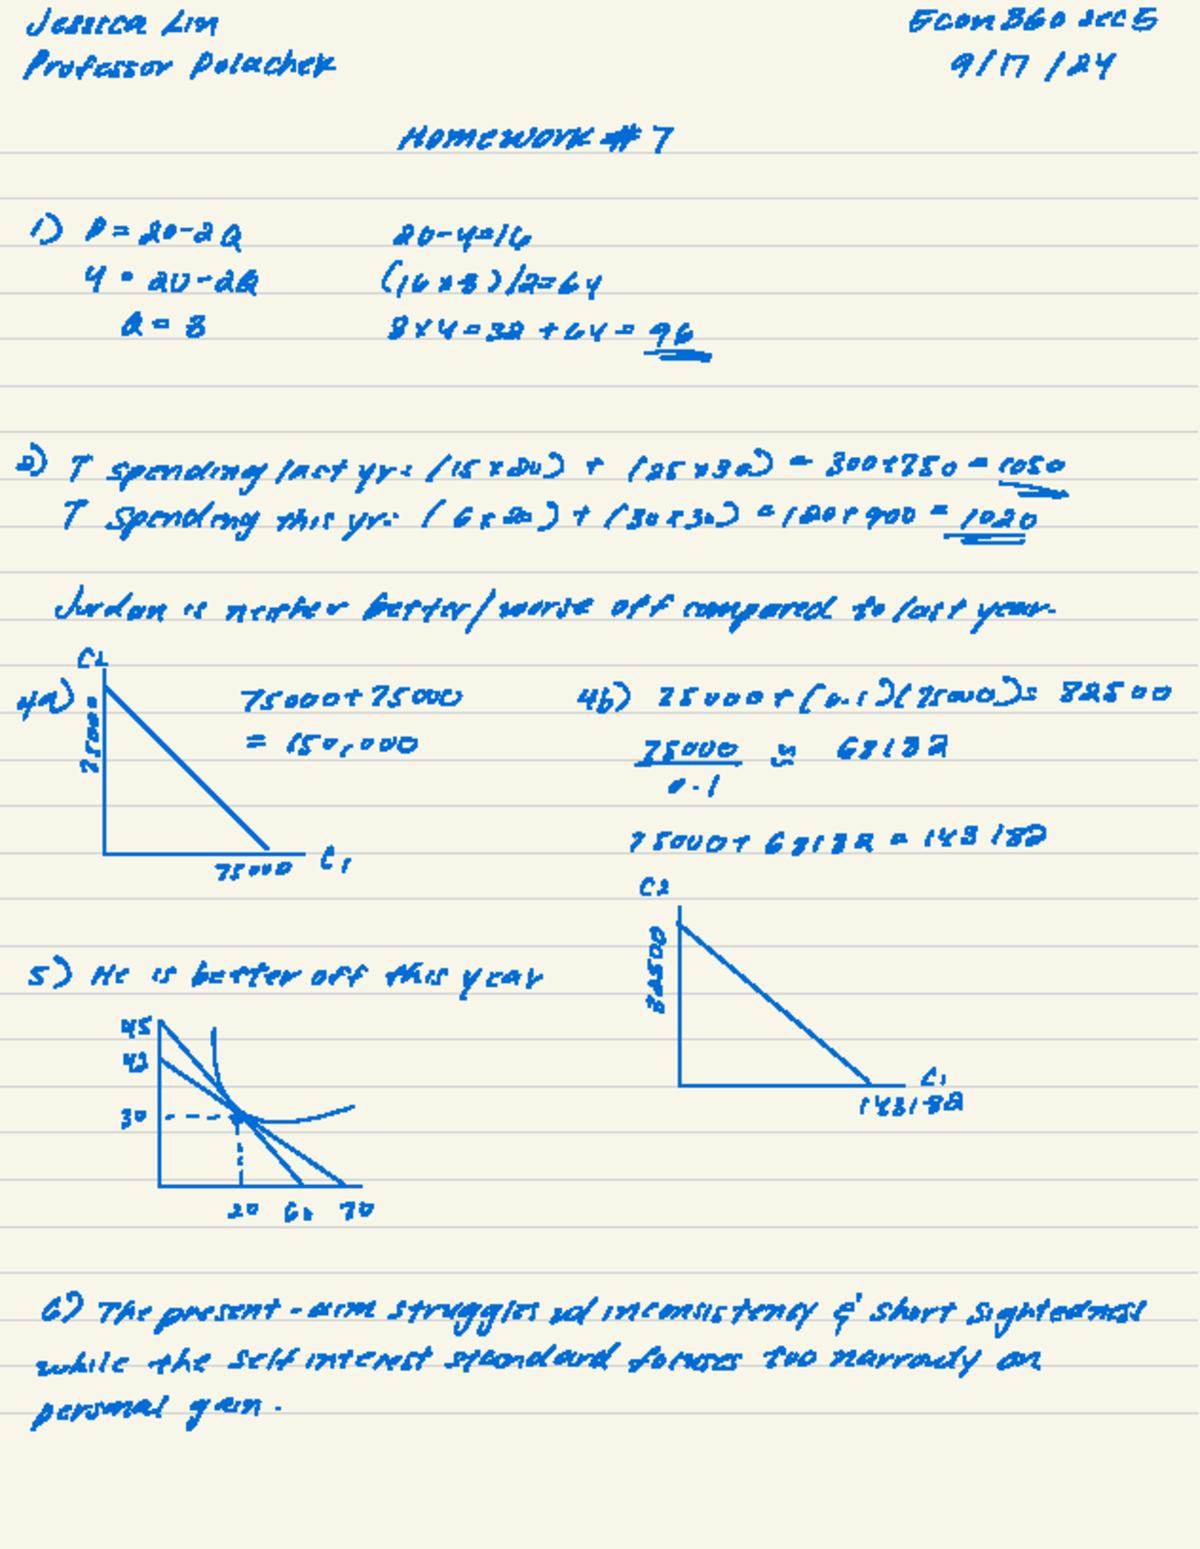 Jessica Lin
Econ 360 sec 5
Professor Polachek
9/17/24
Homework #7
1) P = 20-2Q
20-4=16
4 = 20-2Q
(16x8)/2=64
Q = 8
8x4=32+64=96
2) T spending last yr: (15x20) + (25x30) = 300+750 = 1050
T spending this yr: (6x20) + (30x30) = 120+900 = 1020
Jordan is neither better/worse off compared to last year.
4a)
C2
75000
75000 C1
75000+75000
= 150,000
4b) 75000+(0.1)(75000)= 82500
75000
0.1
≈ 68182
75000+68182 = 143182
C2
82500
C1
143182
5) He is better off this year
45
30
20 70
6) The present-aim struggles w/ inconsistency & short sightedness
while the self interest standard focuses too narrowly on
personal gain.